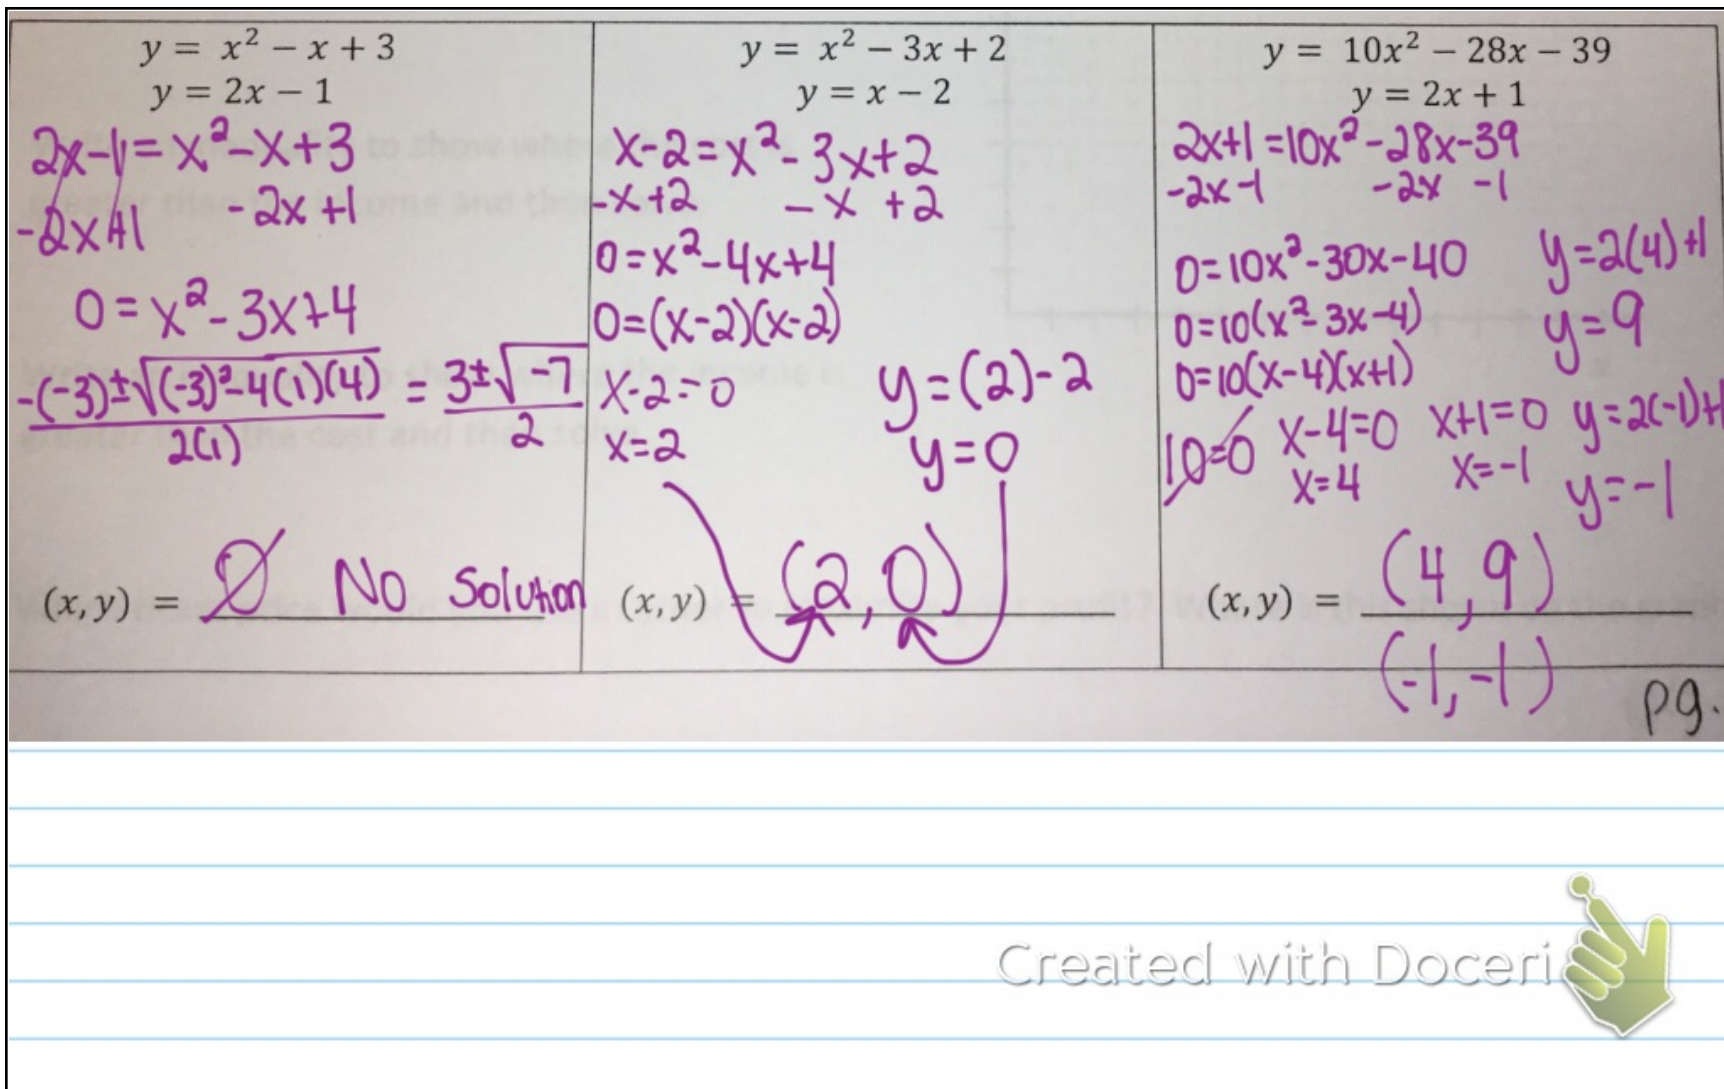 y = x² − x + 3
y = 2x − 1
2x-1=x²-x+3
-2x+1 -2x+1
0=x²-3x+4
-(-3)±√(-3)²-4(1)(4) = 3±√-7
2(1) 2
(x, y) = ∅ No Solution
y = x² − 3x + 2
y = x − 2
x-2=x²-3x+2
-x+2 -x+2
0=x²-4x+4
0=(x-2)(x-2)
x-2=0 y=(2)-2
x=2 y=0
(x, y) = (2,0)
y = 10x² − 28x − 39
y = 2x + 1
2x+1=10x²-28x-39
-2x-1 -2x -1
0=10x²-30x-40 y=2(4)+1
0=10(x²-3x-4) y=9
0=10(x-4)(x+1)
10=0 x-4=0 x+1=0 y=2(-1)+1
x=4 x=-1 y=-1
(x, y) = (4,9)
(-1,-1)
pg.
Created with Doceri